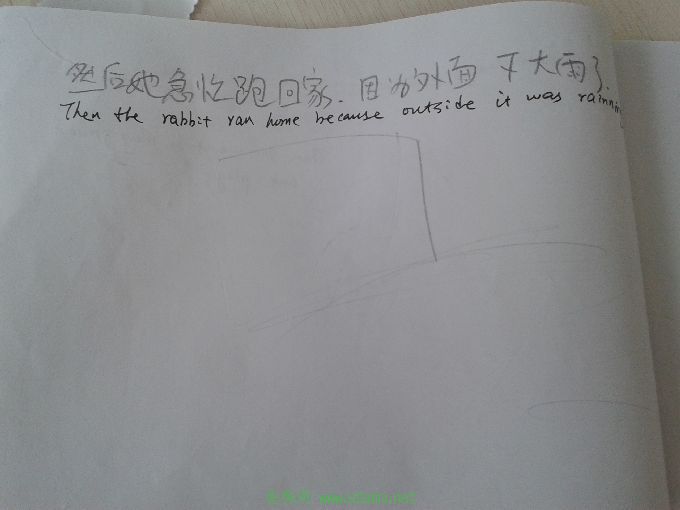 然后她急忙跑回家.因为外面下大雨了.
Then the rabbit ran home because outside it was rainnin